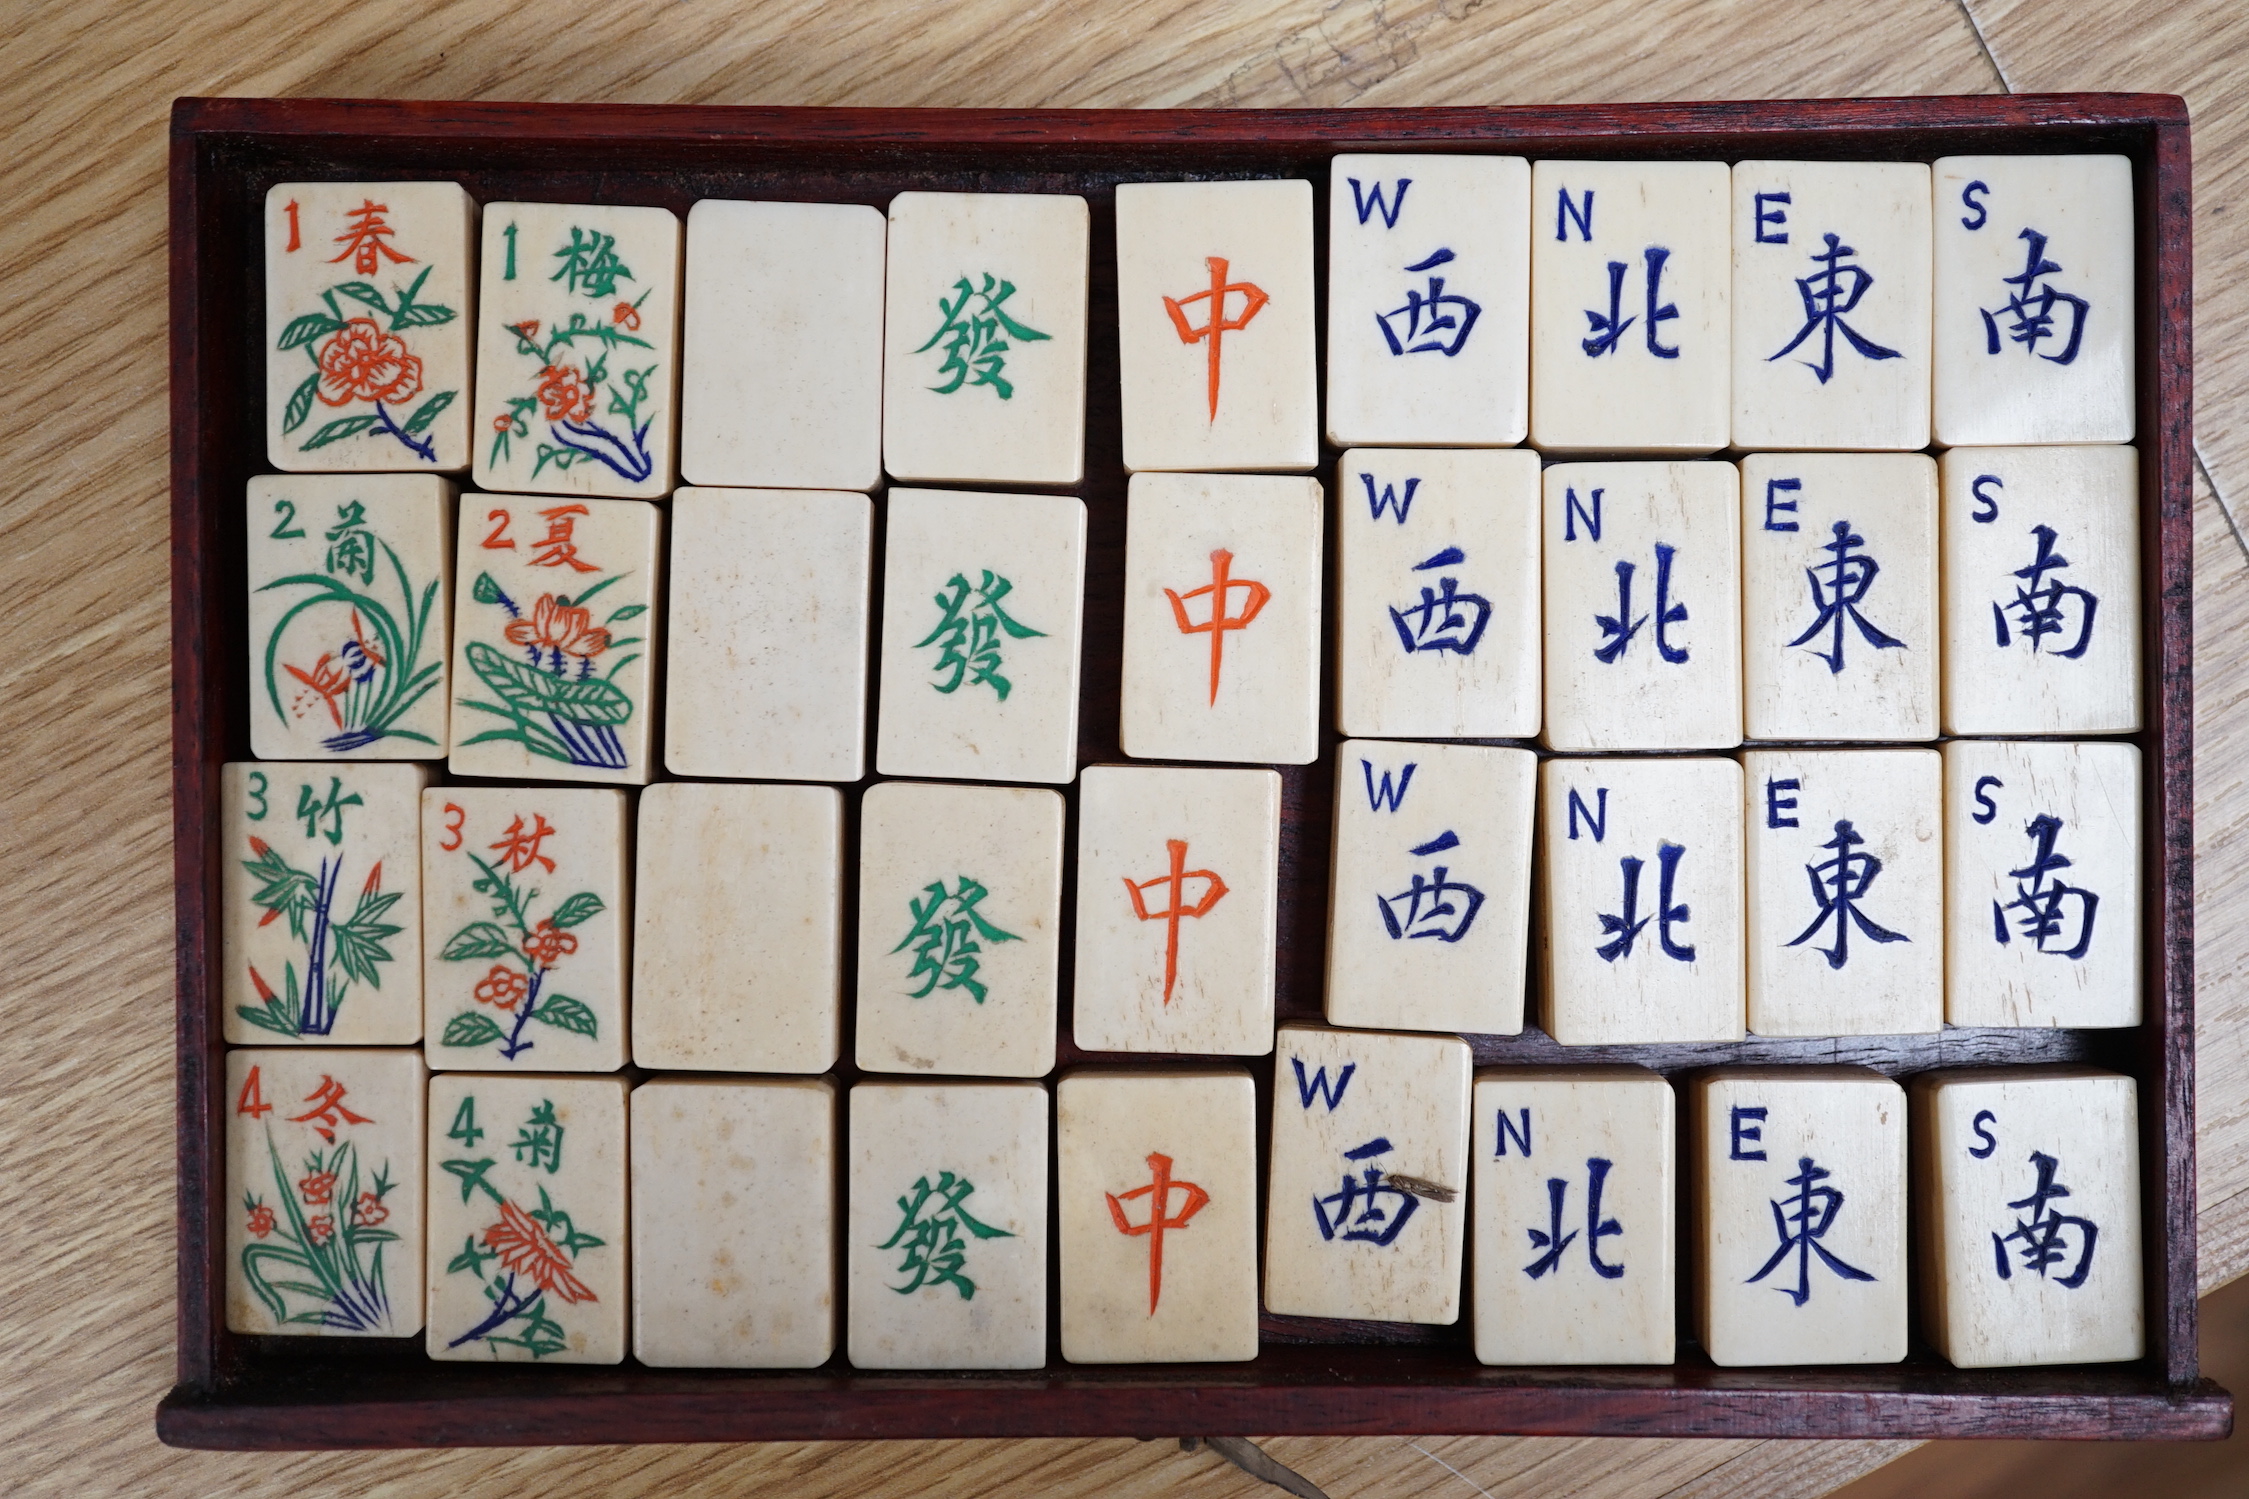 1 春 1 梅 發 中 W 西 N 北 E 東 S 南
2 蘭 2 夏 發 中 W 西 N 北 E 東 S 南
3 竹 3 秋 發 中 W 西 N 北 E 東 S 南
4 冬 4 菊 發 中 W 西 N 北 E 東 S 南